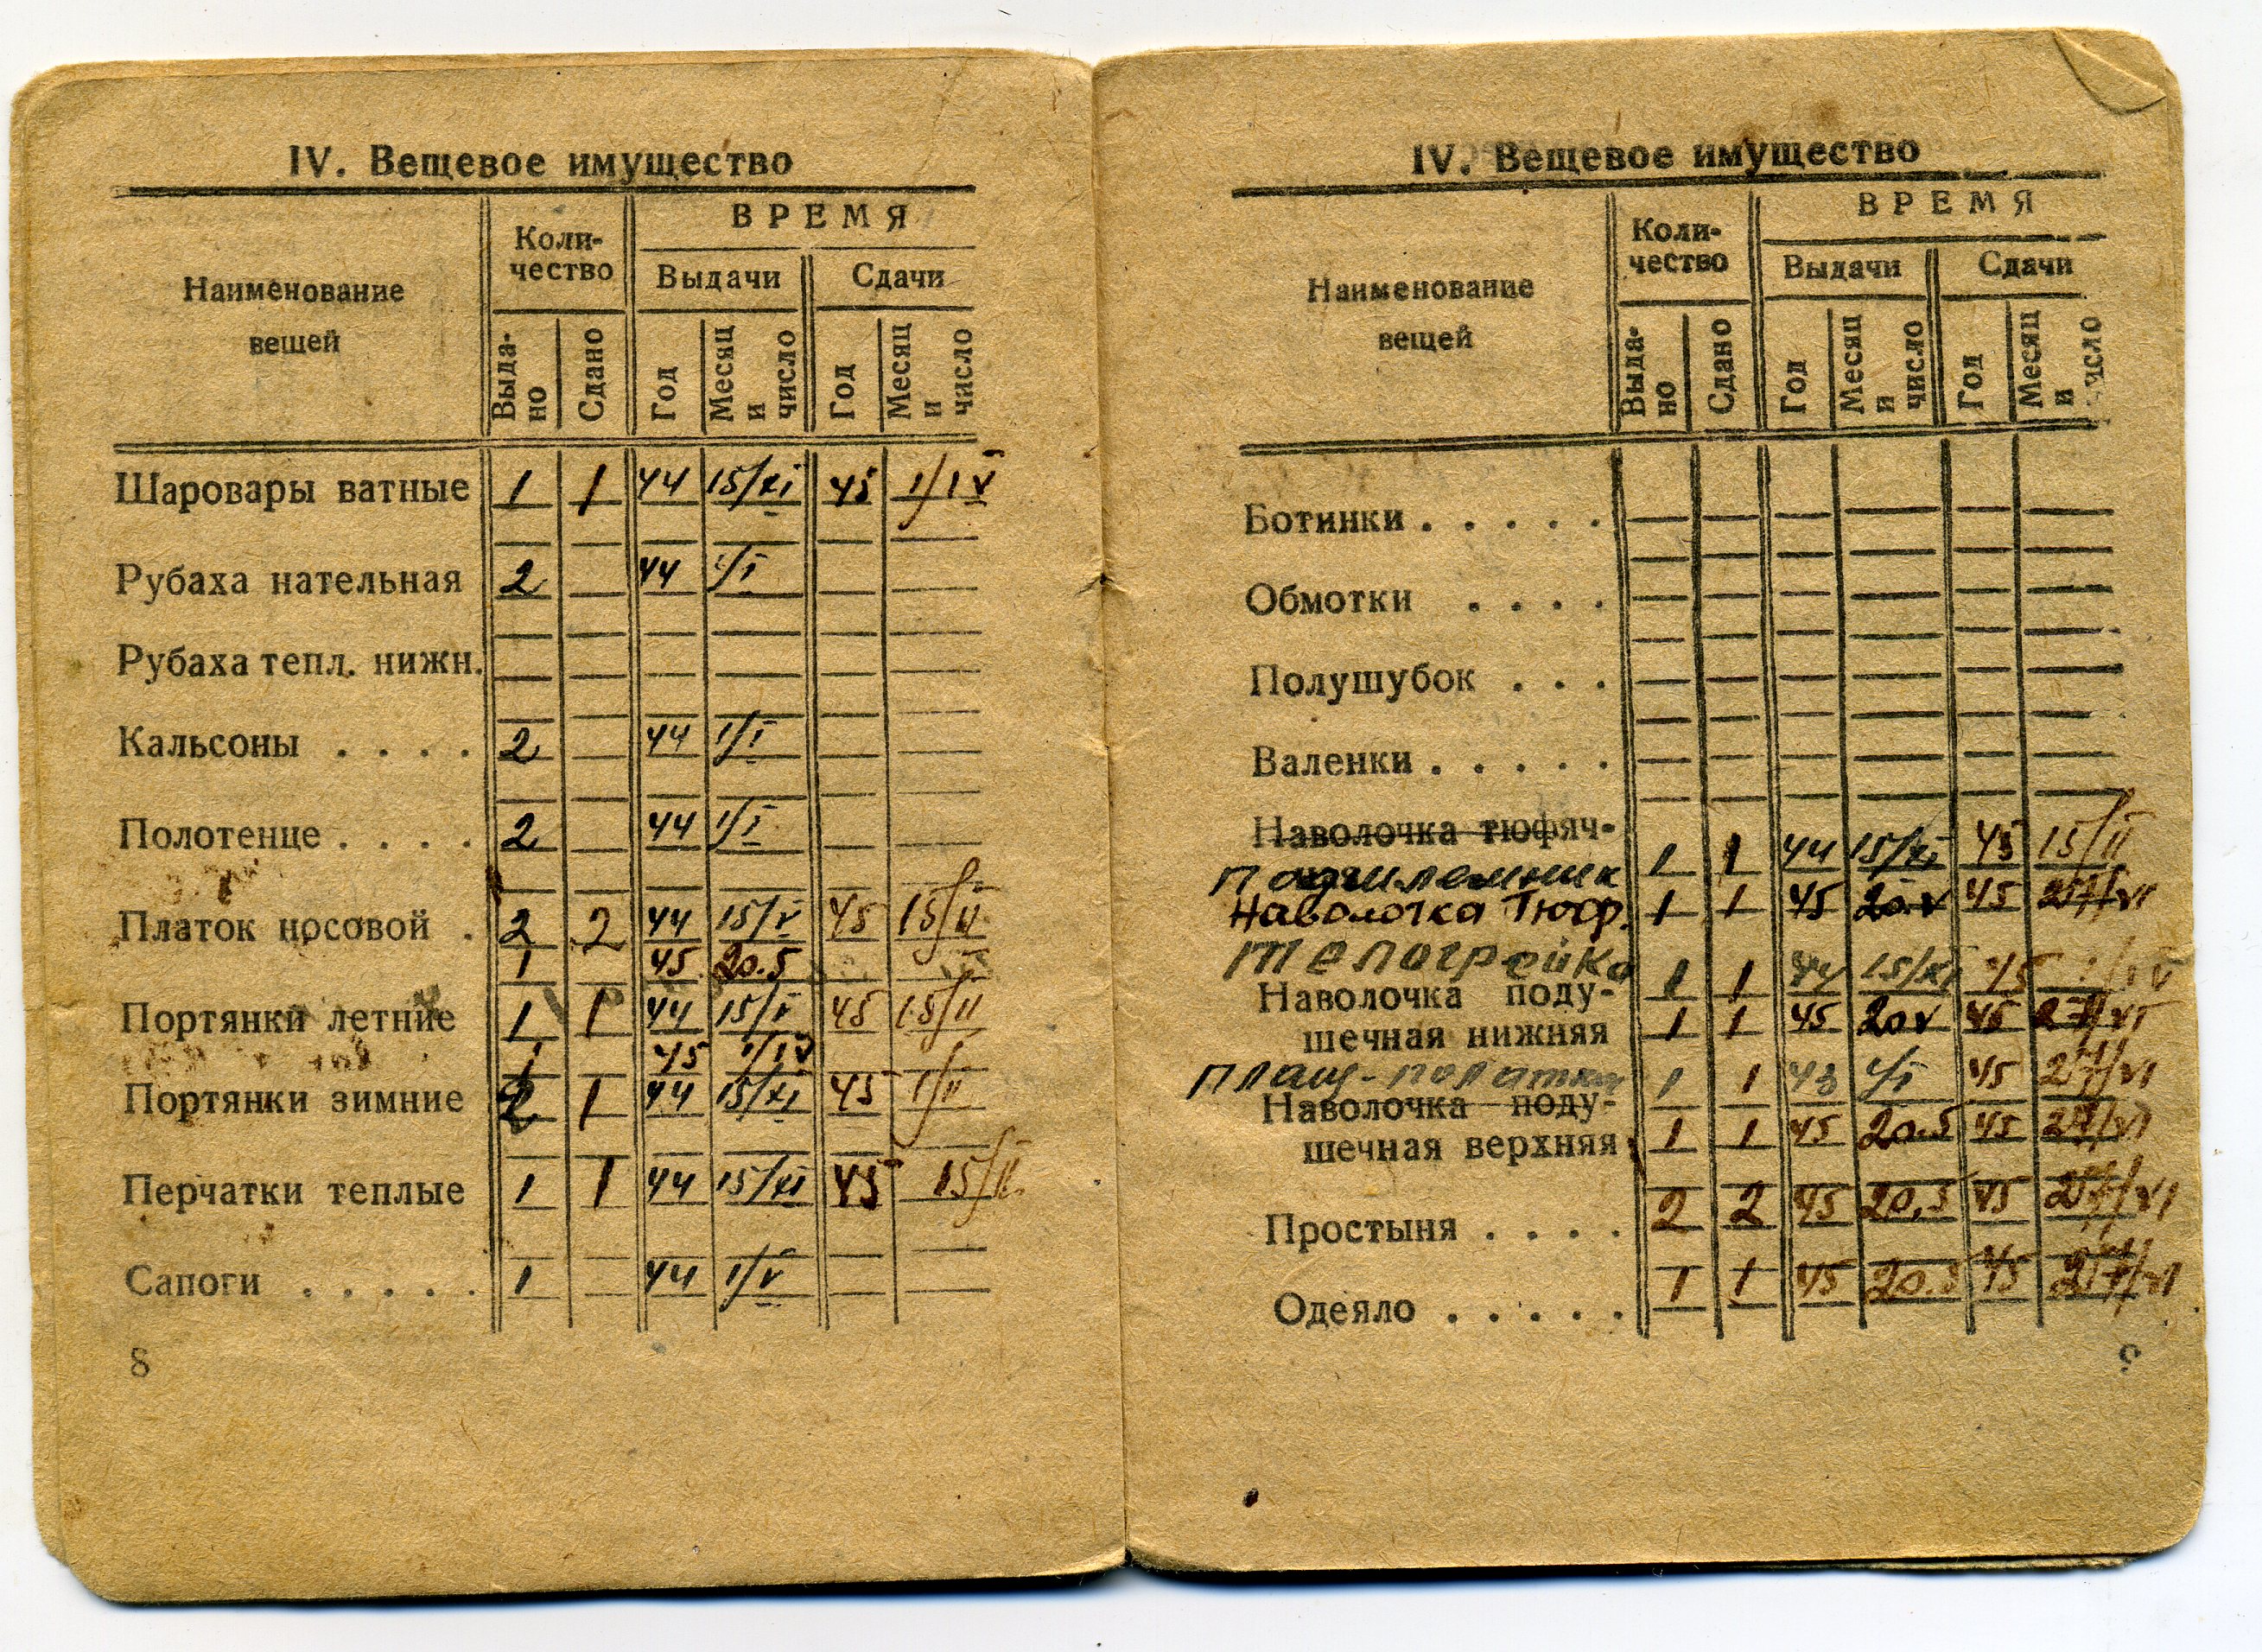 IV. Вещевое имущество
Наименование
вещей
Коли-
чество
ВРЕМЯ
Выдачи
Сдачи
Выда-
но
Сдано
Год
Месяц
и
число
Год
Месяц
и
число
Шаровары ватные 1 1 44 15/XI 45 1/IV
Рубаха нательная 2 44 1/I
Рубаха тепл. нижн.
Кальсоны . . . . 2 44 1/I
Полотенце . . . . 2 44 1/I
Платок носовой . 2 2 44 15/V 45 15/II
1 45 20.5
Портянки летние 1 1 44 15/V 45 15/II
1 45 1/IV
Портянки зимние 2 1 44 15/XI 45 1/II
Перчатки теплые 1 1 44 15/XI 45 15/II
Сапоги . . . . . 1 44 1/V
8
IV. Вещевое имущество
Наименование
вещей
Коли-
чество
ВРЕМЯ
Выдачи
Сдачи
Выда-
но
Сдано
Год
Месяц
и
число
Год
Месяц
и
число
Ботинки . . . . .
Обмотки . . . .
Полушубок . . .
Валенки . . . . .
Наволочка тюфяч-
Подшлемник 1 1 44 15/XI 45 15/II
Наволочка Тюф. 1 1 45 20.V 45 27/VI
Телогрейка 1 1 44 15/XI 45 1/IV
Наволочка поду-
шечная нижняя 1 1 45 20 V 45 27/VI
Плащ-палатка 1 1 43 1/I 45 27/VI
Наволочка поду-
шечная верхняя 1 1 45 20.5 45 27/VI
Простыня . . . . 2 2 45 20.5 45 27/VI
Одеяло . . . . . 1 1 45 20.5 45 27/VI
9